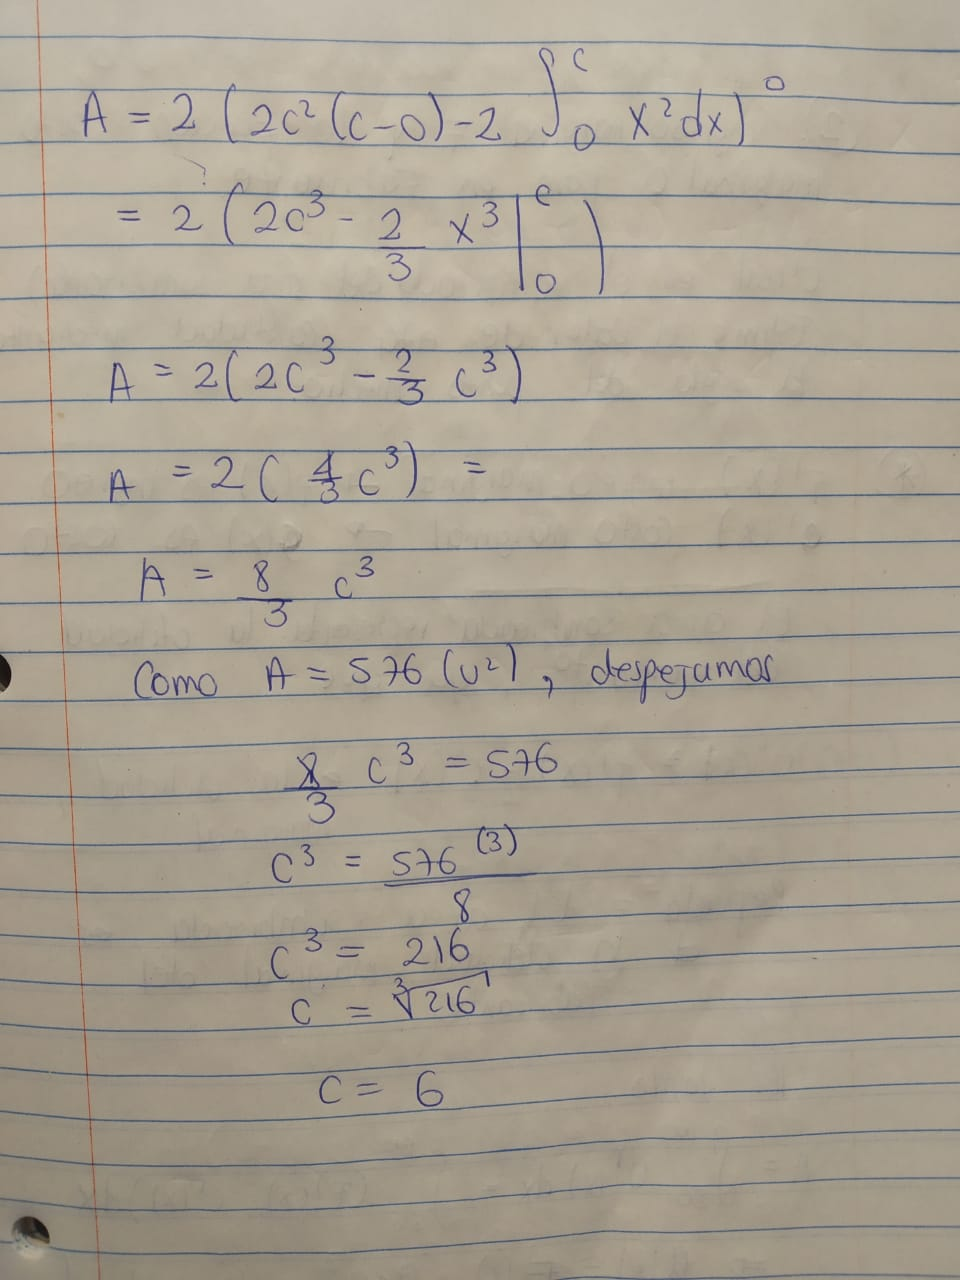 A = 2 (2c² (c-0) - 2 ∫₀ᶜ x² dx)⁰
= 2 (2c³ - 2/3 x³ |₀ᶜ)
A = 2(2c³ - 2/3 c³)
A = 2 ( 4/3 c³) =
A = 8/3 c³
Como A = 576 (u²), despejamos
8/3 c³ = 576
c³ = 576 (3)/8
c³ = 216
c = ∛216
c = 6